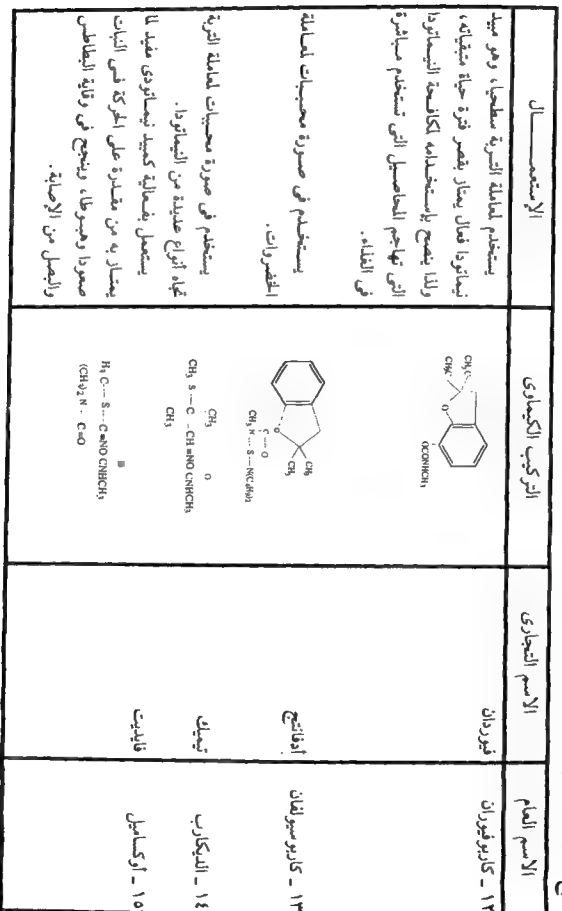 ع
الاسم العام
الاسم التجارى
التركيب الكيماوى
الإستعمـــــال
١٢ ـ كاربوفيوران
فيوردان
OCONHCH₃
يستخدم لمعاملة التربة سطحيا، وهو مبيد
نيماتودا فعال يمتاز بقصر فترة حياة متبقياته،
ولذا ينصح بإستخدامه لكافحة النيماتودا
التى تهاجم المحاصيل التى تستخدم مباشرة
فى الغذاء.
١٣ ـ كاربوسولفان
أدفانتج
O
CH₃
CH₃
C — O
CH₃ N ... S — N(C₄H₉)₂
يستخدم فى صورة محببات لمعاملة
الخضروات.
١٤ ـ الديكارب
تيميك
CH₃ O
CH₃ S — C - CH =NO CNHCH₃
CH₃
يستخدم فى صورة محببات لمعاملة التربة
تجاه أنواع عديدة من النيماتودا.
١٥ ـ أوكساميل
فايديت
H₃ C — S ... C =NO CNHCH₃
(CH₃)₂ N - C=O
يستعمل بفعالية كمبيد نيماتودى مفيد لما
يمتاز به من مقدرة على الحركة فى النبات
صعودا وهبوطا، وينجح فى وقاية البطاطس
والبصل من الإصابة.